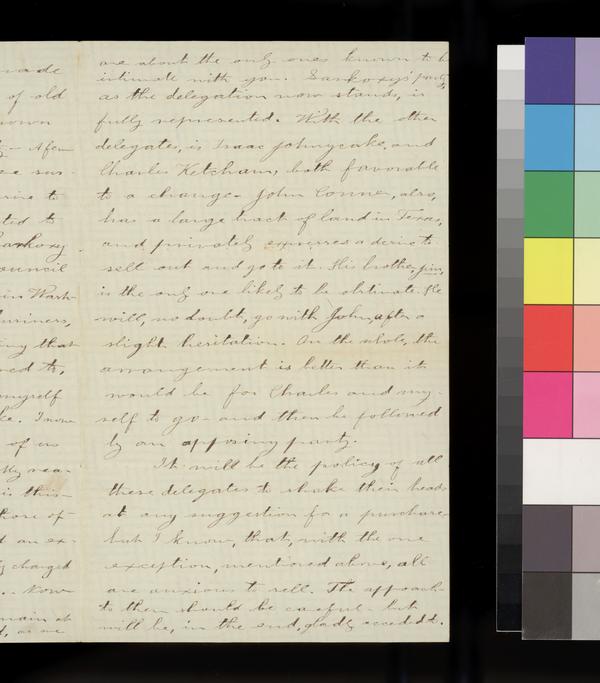 made
of old
known
After
sus-
to
ted to
Sarkoxy
Council
in Wash-
business,
ing that
ned to,
myself
ke. I now
of us
My rea-
is this-
those of
d an ex-
charged
Now
main at
as we
are about the only ones known to be
intimate with you. Sarkoxy's party
as the delegation now stands, is
fully represented. With the other
delegates, is Isaac Johnycake, and
Charles Ketcham, both favorable
to a change. John Conner, also,
has a large tract of land in Texas,
and privately expresses a desire to
sell out and go to it. His brother, Jim,
is the only one likely to be obstinate. He
will, no doubt, go with John, after a
slight hesitation. On the whole, the
arrangement is better than it
would be for Charles and my-
self to go- and then be followed
by an opposing party.
It will be the policy of all
these delegates to shake their heads
at any suggestion for a purchase,
but I know, that, with the one
exception, mentioned above, all
are anxious to sell. The approach
to them should be careful- but
will be, in the end, gladly acceded.